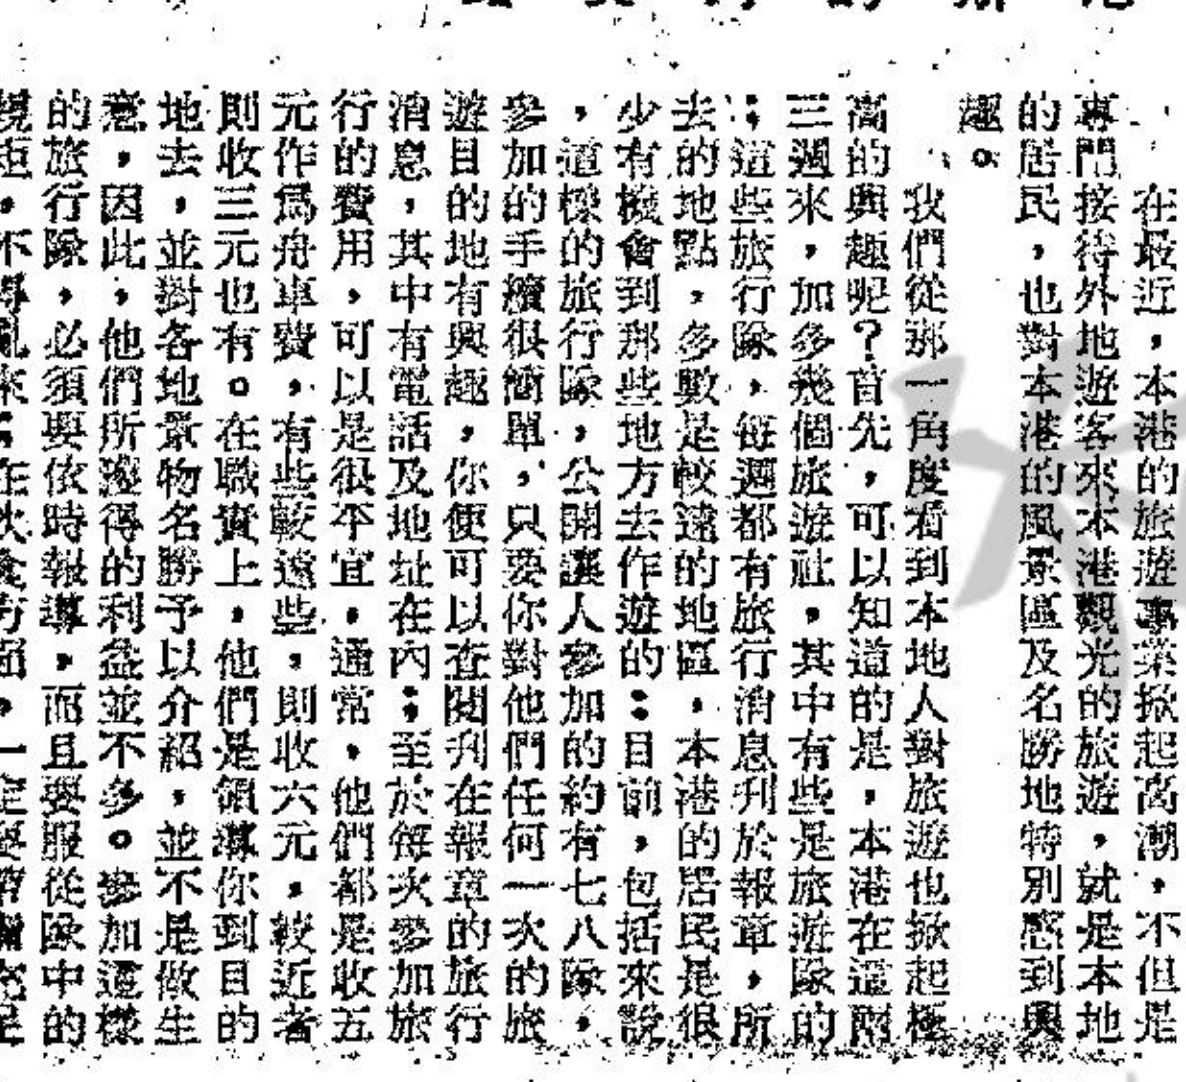 在最近，本港的旅遊事業掀起高潮，不但是
專門接待外地遊客來本港觀光的旅遊，就是本地
的居民，也對本港的風景區及名勝地特別感到興
趣。
我們從那一角度看到本地人對旅遊也掀起極
高的興趣呢？首先，可以知道的是，本港在這兩
三週來，加多幾個旅遊社，其中有些是旅遊隊的
；這些旅行隊，每週都有旅行消息刊於報章，所
去的地點，多數是較遠的地區，本港的居民是很
少有機會到那些地方去作遊的：目前，包括來說
，這樣的旅行隊，公開讓人參加的約有七八隊，
參加的手續很簡單，只要你對他們任何一次的旅
遊目的地有興趣，你便可以查閱刊在報章的旅行
消息，其中有電話及地址在內；至於每次參加旅
行的費用，可以是很平宜，通常，他們都是收五
元作爲舟車費，有些較遠些，則收六元，較近者
則收三元也有。在職責上，他們是領導你到目的
地去，並對各地景物名勝予以介紹，並不是做生
意，因此，他們所獲得的利益並不多。參加這樣
的旅行隊，必須要依時報導，而且要服從隊中的
，不得亂來；在飲食方面，一定要帶備充足